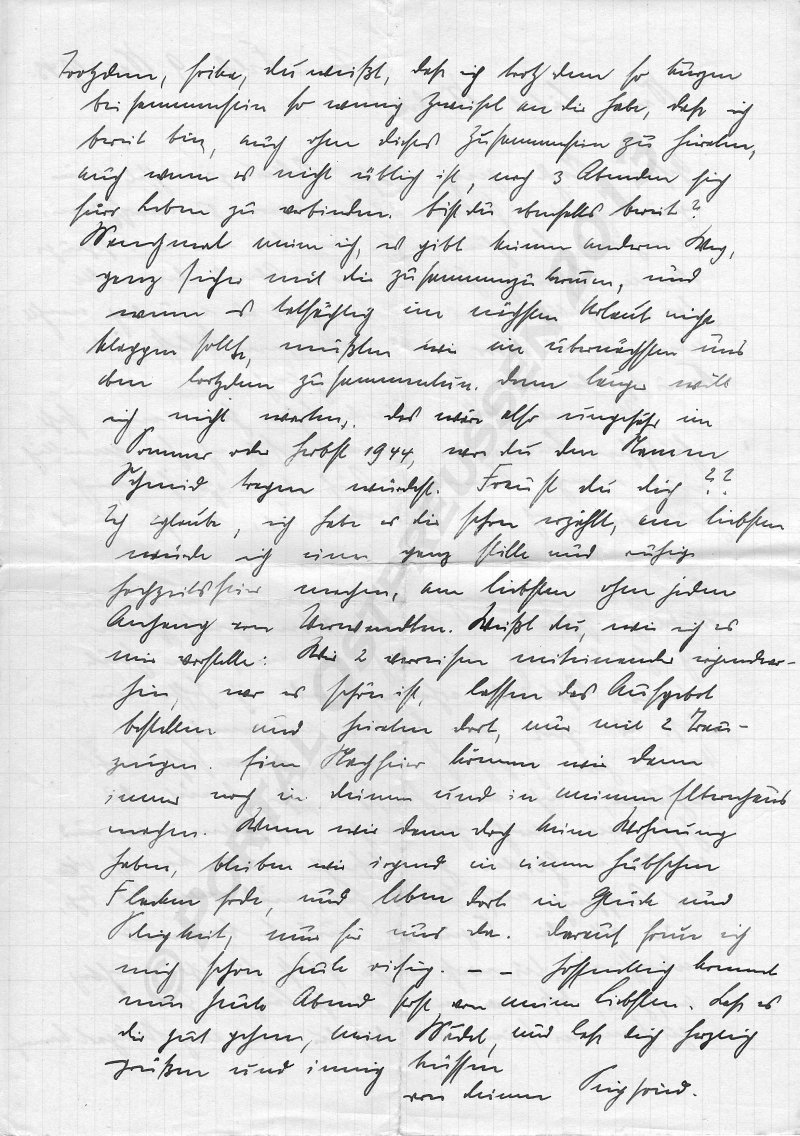 Trotzdem, Frika, du weißt, daß ich trotz dem so kurzen
beisammensein so wenig Zweifel an dir habe, daß ich
bereit bin, auch ohne dieses Zusammensein zu heiraten,
auch wenn es nicht üblich ist, nach 3 Abenden sich
fürs Leben zu verbinden. bist du ebenfalls bereit?
Manchmal mein ich, es gibt keinen anderen Weg,
ganz sicher mit dir zusammenzukommen, und
wenn es tatsächlich im nächsten Urlaub nicht
klappen sollte, müßten wir im übernächsten uns
eben trotzdem zusammentun. denn länger will
ich nicht warten,. das wäre also ungefähr im
Sommer oder Herbst 1944, wo du den Namen
Schmid tragen würdest. Freust du dich ??
Ich glaube, ich habe es dir schon erzählt, am liebsten
würde ich eine ganz stille und ruhige
Hochzeitsfeier machen, am liebsten ohne jeden
Anhang von Verwandten. Weißt du, wie ich es
mir vorstelle: Wir 2 verreisen miteinander irgendwo-
hin, wo es schön ist, lassen das Aufgebot
bestellen und heiraten dort, nur mit 2 Trau-
zeugen. Eine Nachfeier können wir dann
immer noch in deinem und in meinem Elternhaus
machen. Wenn wir dann doch keine Wohnung
haben, bleiben wir irgend in einem hübschen
Flecken Erde, und leben dort in Glück und
Seligkeit, nur für uns da. darauf freue ich
mich schon heute riesig. — — Hoffentlich kommt
nun heute Abend Post von meiner Liebsten. Laß es
dir gut gehen, mein Mädel, und laß dich herzlich
grüßen und innig küssen
von deinem Siegfried.
© PORTAL-OSTPREUSSEN 2013